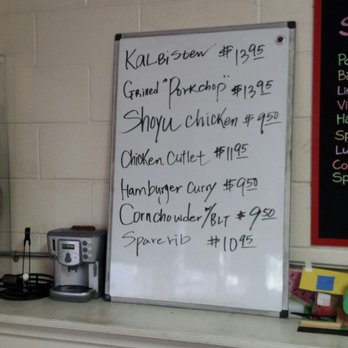 Kalbi Stew $13.95
Grilled "Porkchop" $13.95
Shoyu chicken $9.50
Chicken Cutlet $11.95
Hamburger Curry $9.50
Cornchowder w/BLT $9.50
Sparerib $10.95
S
Po
Bi
Lin
Vi
Ha
Sp
Lu
Co
Sp